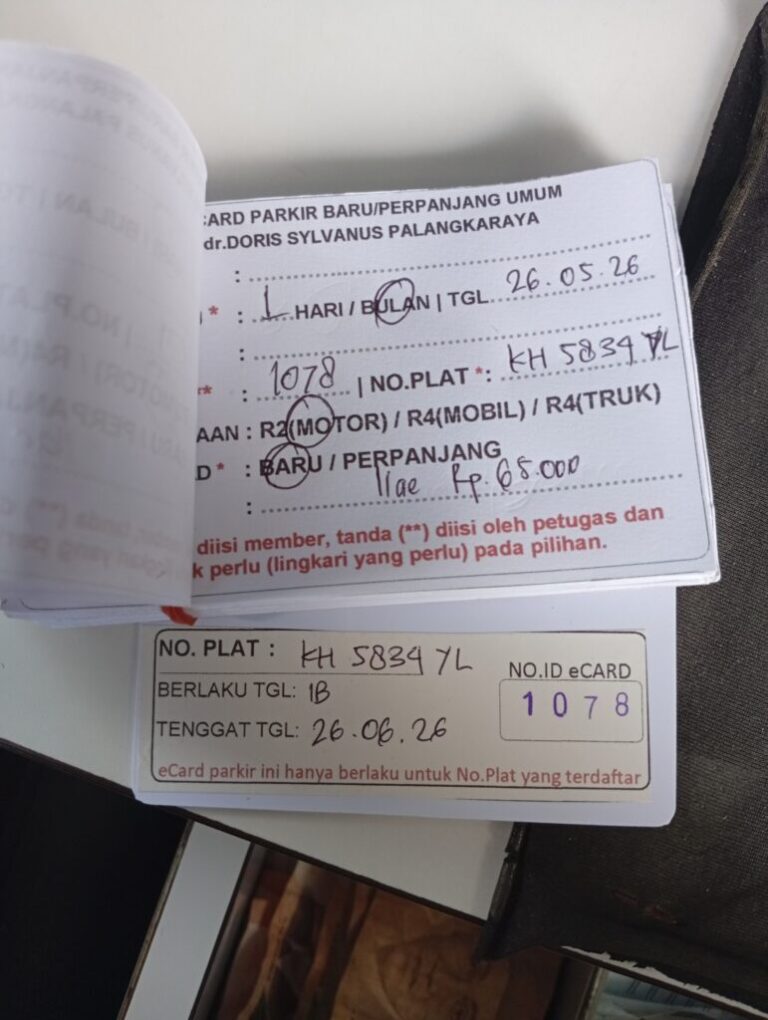 CARD PARKIR BARU/PERPANJANG UMUM
dr.DORIS SYLVANUS PALANGKARAYA
:
* : 1 HARI / BULAN | TGL 26.05.26
:
** : 1078 | NO.PLAT *: KH 5834 YL
AAN : R2(MOTOR) / R4(MOBIL) / R4(TRUK)
D * : BARU / PERPANJANG
: Rp. 65.000
diisi member, tanda (**) diisi oleh petugas dan
k perlu (lingkari yang perlu) pada pilihan.
NO. PLAT : KH 5834 YL
NO.ID eCARD
BERLAKU TGL: 1B
1078
TENGGAT TGL: 26.06.26
eCard parkir ini hanya berlaku untuk No.Plat yang terdaftar